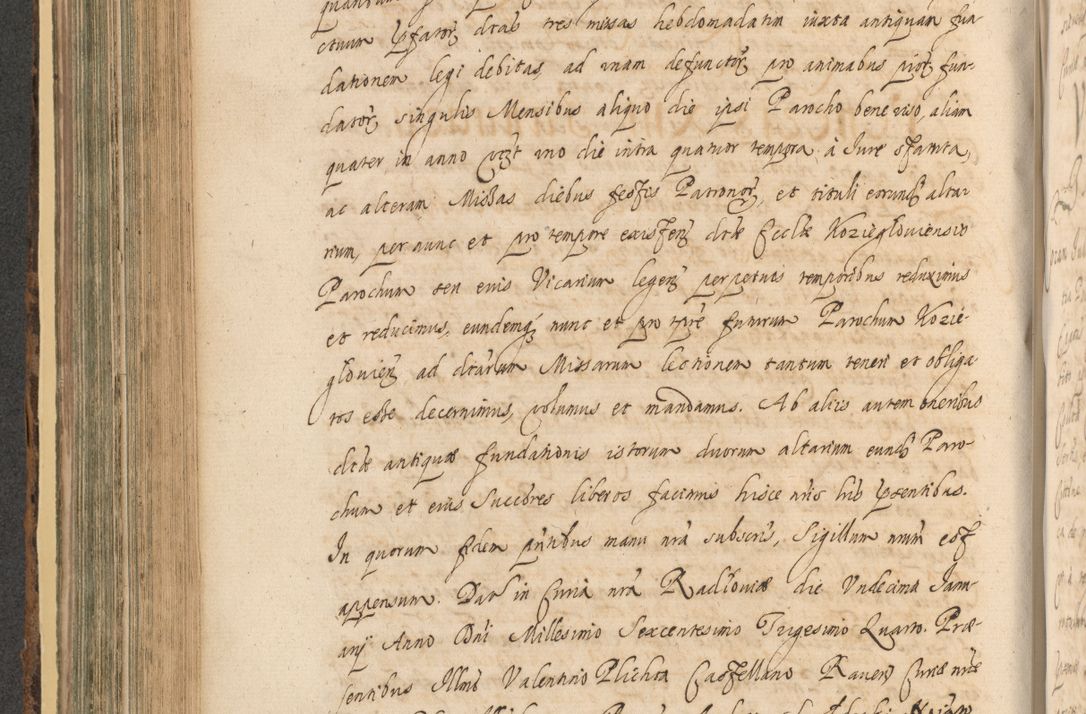 ctuum Psator, dtas tres missas hebdomadatim iuxta antiquam fun
dationem legi debitas, ad unam defunctor, pro animabus pior, fun-
dator, singulis Mensibus aliquo die ipsi Parocho bene viso, aliam
quater in anno vnt uno die intra quatuor tempora à Iure statuta,
ac alteram Missas diebus festis Patronor, et tituli eorund, altar
rium, per nunc et pro tempore existen, dtae Eccliae Koziegloviensis
Parochum seu eius Vicarium legen, perpetuis temporibus reduximus
et reducimus, eundemq, nunc et pro tpre futurum Parochum Kozie-
glovien, ad dtarum Missarum lectionem tantum teneri et obliga-
tos esse decernimus, volumus et mandamus. Ab aliis autem oneribus
dtae antiquae fundationis istorum duorum altarium eund, Paro-
chum et eius Succores liberos facimus hisce nris lris psentibus.
In quorum fidem pntibus manu nra subscris, Sigillum nrum est
appensum. Dat in Curia nra Radloviae die Undecima Janu-
arij Anno Dni Millesimo Sexcentesimo Trigesimo Quarto. Præ-
sentibus Illmis Valentino Plichta Castellano Raven, Curiae nrae